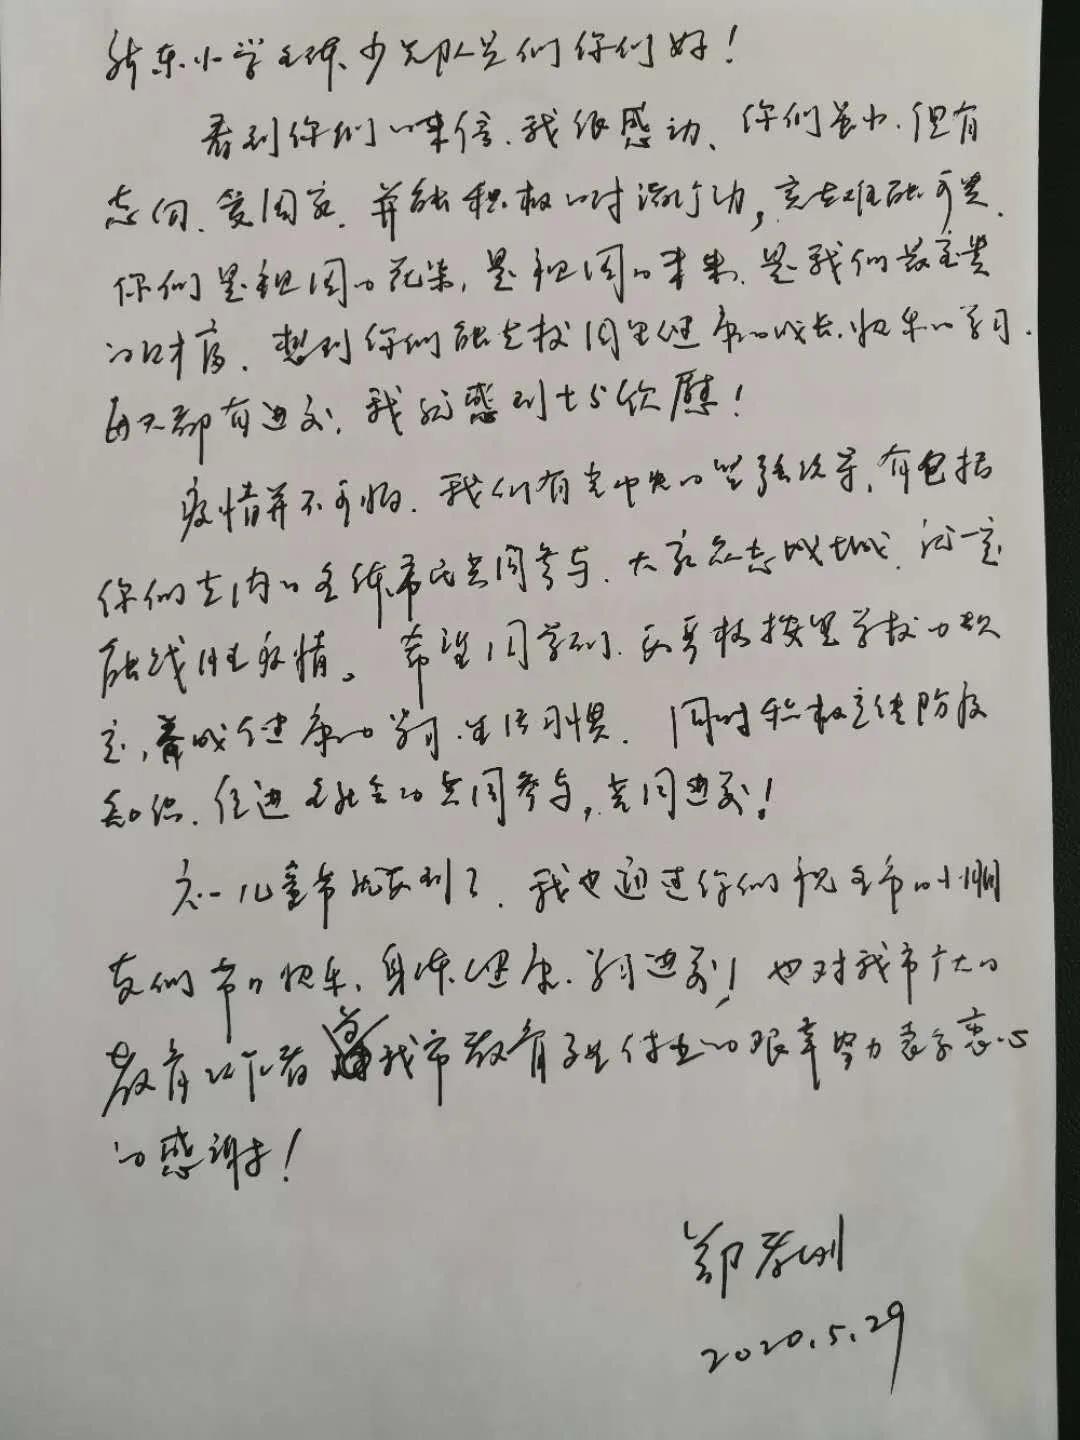 新东小学全体少先队员们你们好！
看到你们的来信，我很感动，你们虽小，但有
志向、爱国家，并能积极的付诸行动，实在难能可贵，
你们是祖国的花朵，是祖国的未来，是我们最宝贵
的财富，想到你们能在校园里健康的成长、快乐的学习，
每天都有进步，我就感到十分欣慰！
疫情并不可怕，我们有党中央的坚强领导，有包括
你们在内的全体市民共同参与，大家众志成城，就一定
能战胜疫情。希望同学们，要严格按照学校的规
定，养成健康的学习、生活习惯，同时积极宣传防疫
知识，促进全社会的共同参与，共同进步！
六一儿童节就要到了，我也通过你们祝全市的小朋
友们节日快乐，身体健康，学习进步！也对我市广大的
教育工作者 为我市教育事业付出的艰辛努力表示衷心
的感谢！
郑
2020.5.29